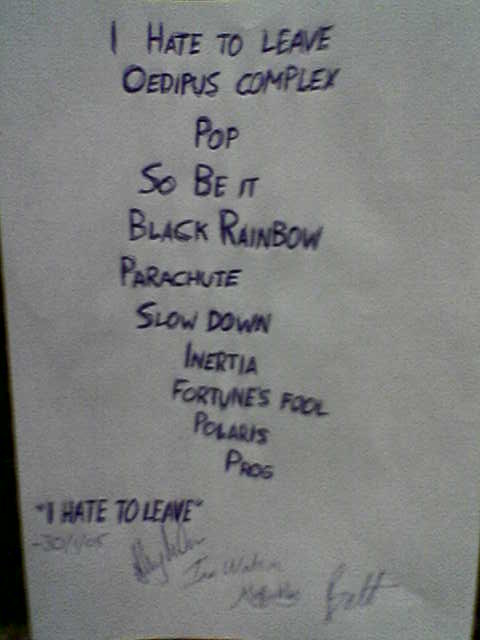 I HATE TO LEAVE
OEDIPUS COMPLEX
POP
SO BE IT
BLACK RAINBOW
PARACHUTE
SLOW DOWN
INERTIA
FORTUNE'S FOOL
POLARIS
PROG
"I HATE TO LEAVE"
-30/1/05
Ian Watson